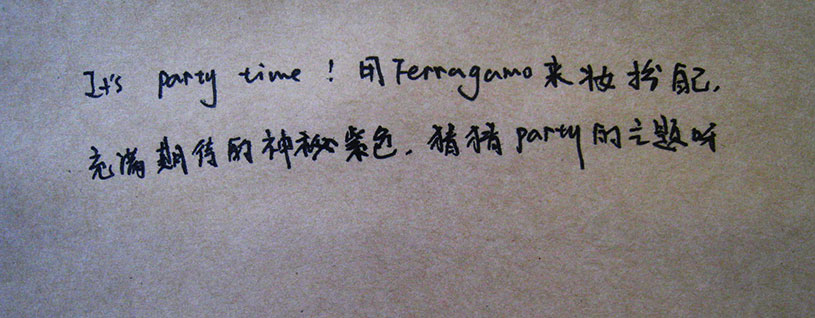 It's party time ! 用Ferragamo来妆扮自己,
充满期待的神秘紫色, 猜猜party的主题呀